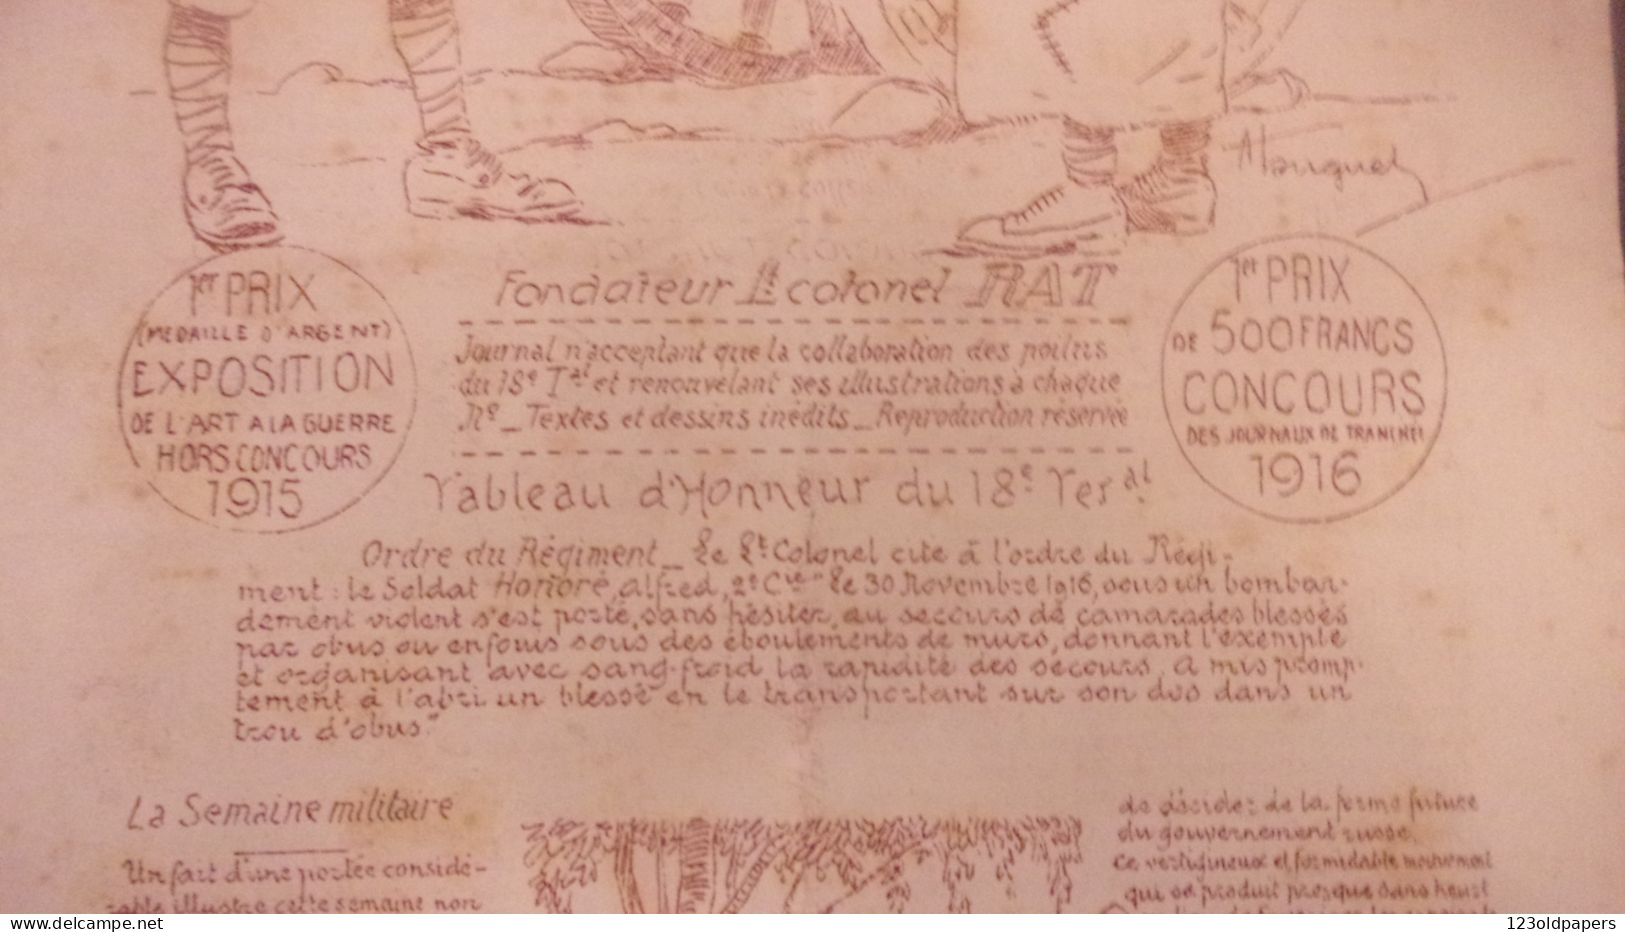 Mouguel
1er PRIX
(MEDAILLE D'ARGENT)
EXPOSITION
DE L'ART A LA GUERRE
HORS CONCOURS
1915
Fondateur Lt colonel RAT
Journal n'acceptant que la collaboration des poilus
du 18e Tal et renouvelant ses illustrations à chaque
No _ Textes et dessins inédits _ Reproduction réservée
Tableau d'Honneur du 18e Teral
1er PRIX
DE 500 FRANCS
CONCOURS
DES JOURNAUX DE TRANCHEE
1916
Ordre du Régiment _ Le Lt Colonel cite à l'ordre du Régi-
ment : le Soldat Honoré, alfred, 2e Cie " Le 30 Novembre 1916, sous un bombar-
dement violent s'est porté, sans hésiter, au secours de camarades blessés
par obus ou enfouis sous des éboulements de murs, donnant l'exemple
et organisant avec sang-froid la rapidité des secours. A mis promp-
tement à l'abri un blessé en le transportant sur son dos dans un
trou d'obus."
La Semaine militaire
Un fait d'une portée considé-
rable illustre cette semaine non
de décider de la forme future
du gouvernement russe.
Ce vertigineux et formidable mouvement
qui se produit presque sans heurt
delcampe.net
123oldpapers